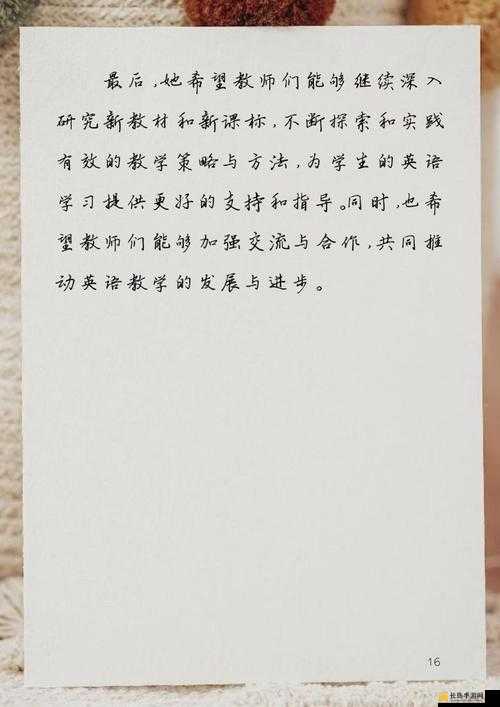 最后,她希望教师们能够继续深入
研究新教材和新课标,不断探索和实践
有效的教学策略与方法,为学生的英语
学习提供更好的支持和指导。同时,也希
望教师们能够加强交流与合作,共同推
动英语教学的发展与进步。
16
长指手游网